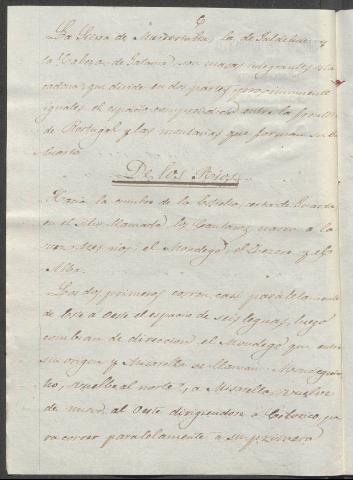 6
La Sierra de Muradonha, la de Jaldelino y
la Cabeza de Jatama son masas integrantes de la
cadena que divide en dos partes proximamente
iguales el espacio comprendido entre la frontera
de Portugal y las montañas que forman
De los Rios
Hacia la cumbre de la Estrella, cerca de Guarda
en el sitio llamado los Cantaros nacen a la
vez tres rios; el Mondego, el Zezere y el
Alba.
Los dos primeros corren casi paralelamente
de Este a Oeste el espacio de seis leguas, luego
cambian de direccion, el Mondego que entre
su origen y Misarella se llama Mondegui
ño, vuelve al norte, a Misarella, vuelve
de nuevo al Oeste dirigiendose a Celorico, pa
ra correr paralelamente a su primera